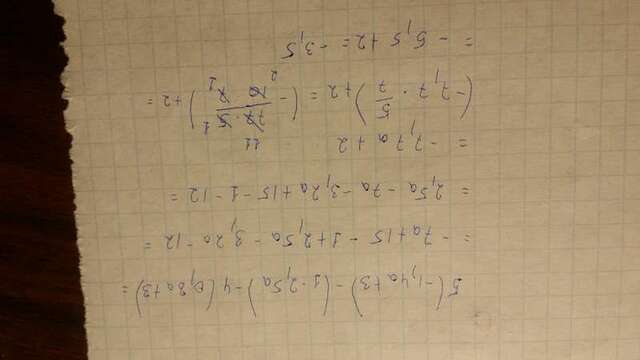 5(-1,4a+3)-(1-2,5a)-4(0,8a+3)=
= -7a+15-1+2,5a-3,2a-12=
= 2,5a-7a-3,2a+15-1-12=
= -7,7a+2
(-7,7·5/7)+2=(-77·5/10·7)+2=
11 1
2 1
= -5,5+2=-3,5